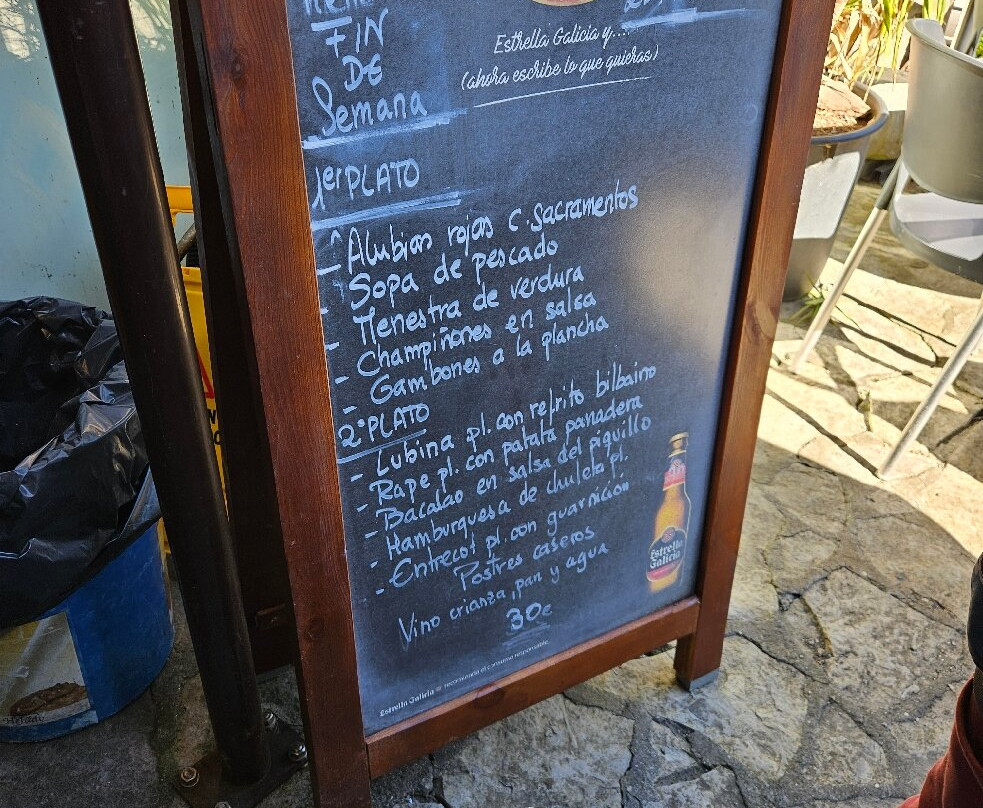 Menú
FIN
DE
Semana
Estrella Galicia y....
(ahora escribe lo que quieras)
1er PLATO
- Alubias rojas c. Sacramentos
- Sopa de pescado
- Menestra de verdura
- Champiñones en salsa
- Gambones a la plancha
2º PLATO
- Lubina pl. con refrito bilbaino
- Rape pl. con patata panadera
- Bacalao en salsa del piquillo
- Hamburguesa de chuleta pl.
- Entrecot pl. con guarnición
Postres caseros
Vino crianza, pan y agua
30€
Estrella Galicia
Estrella Galicia recomienda el consumo responsable.
Helado